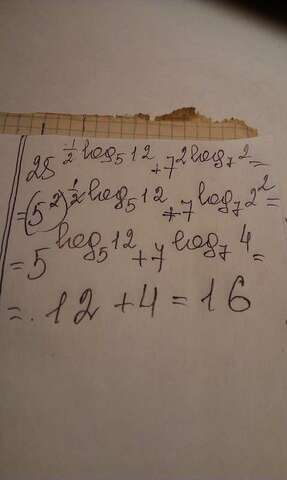 25^{\frac{1}{2} log_5 12} + 7^{2 log_7 2} =
= (5^2)^{\frac{1}{2} log_5 12} + 7^{log_7 2^2} =
= 5^{log_5 12} + 7^{log_7 4} =
= . 12 + 4 = 16